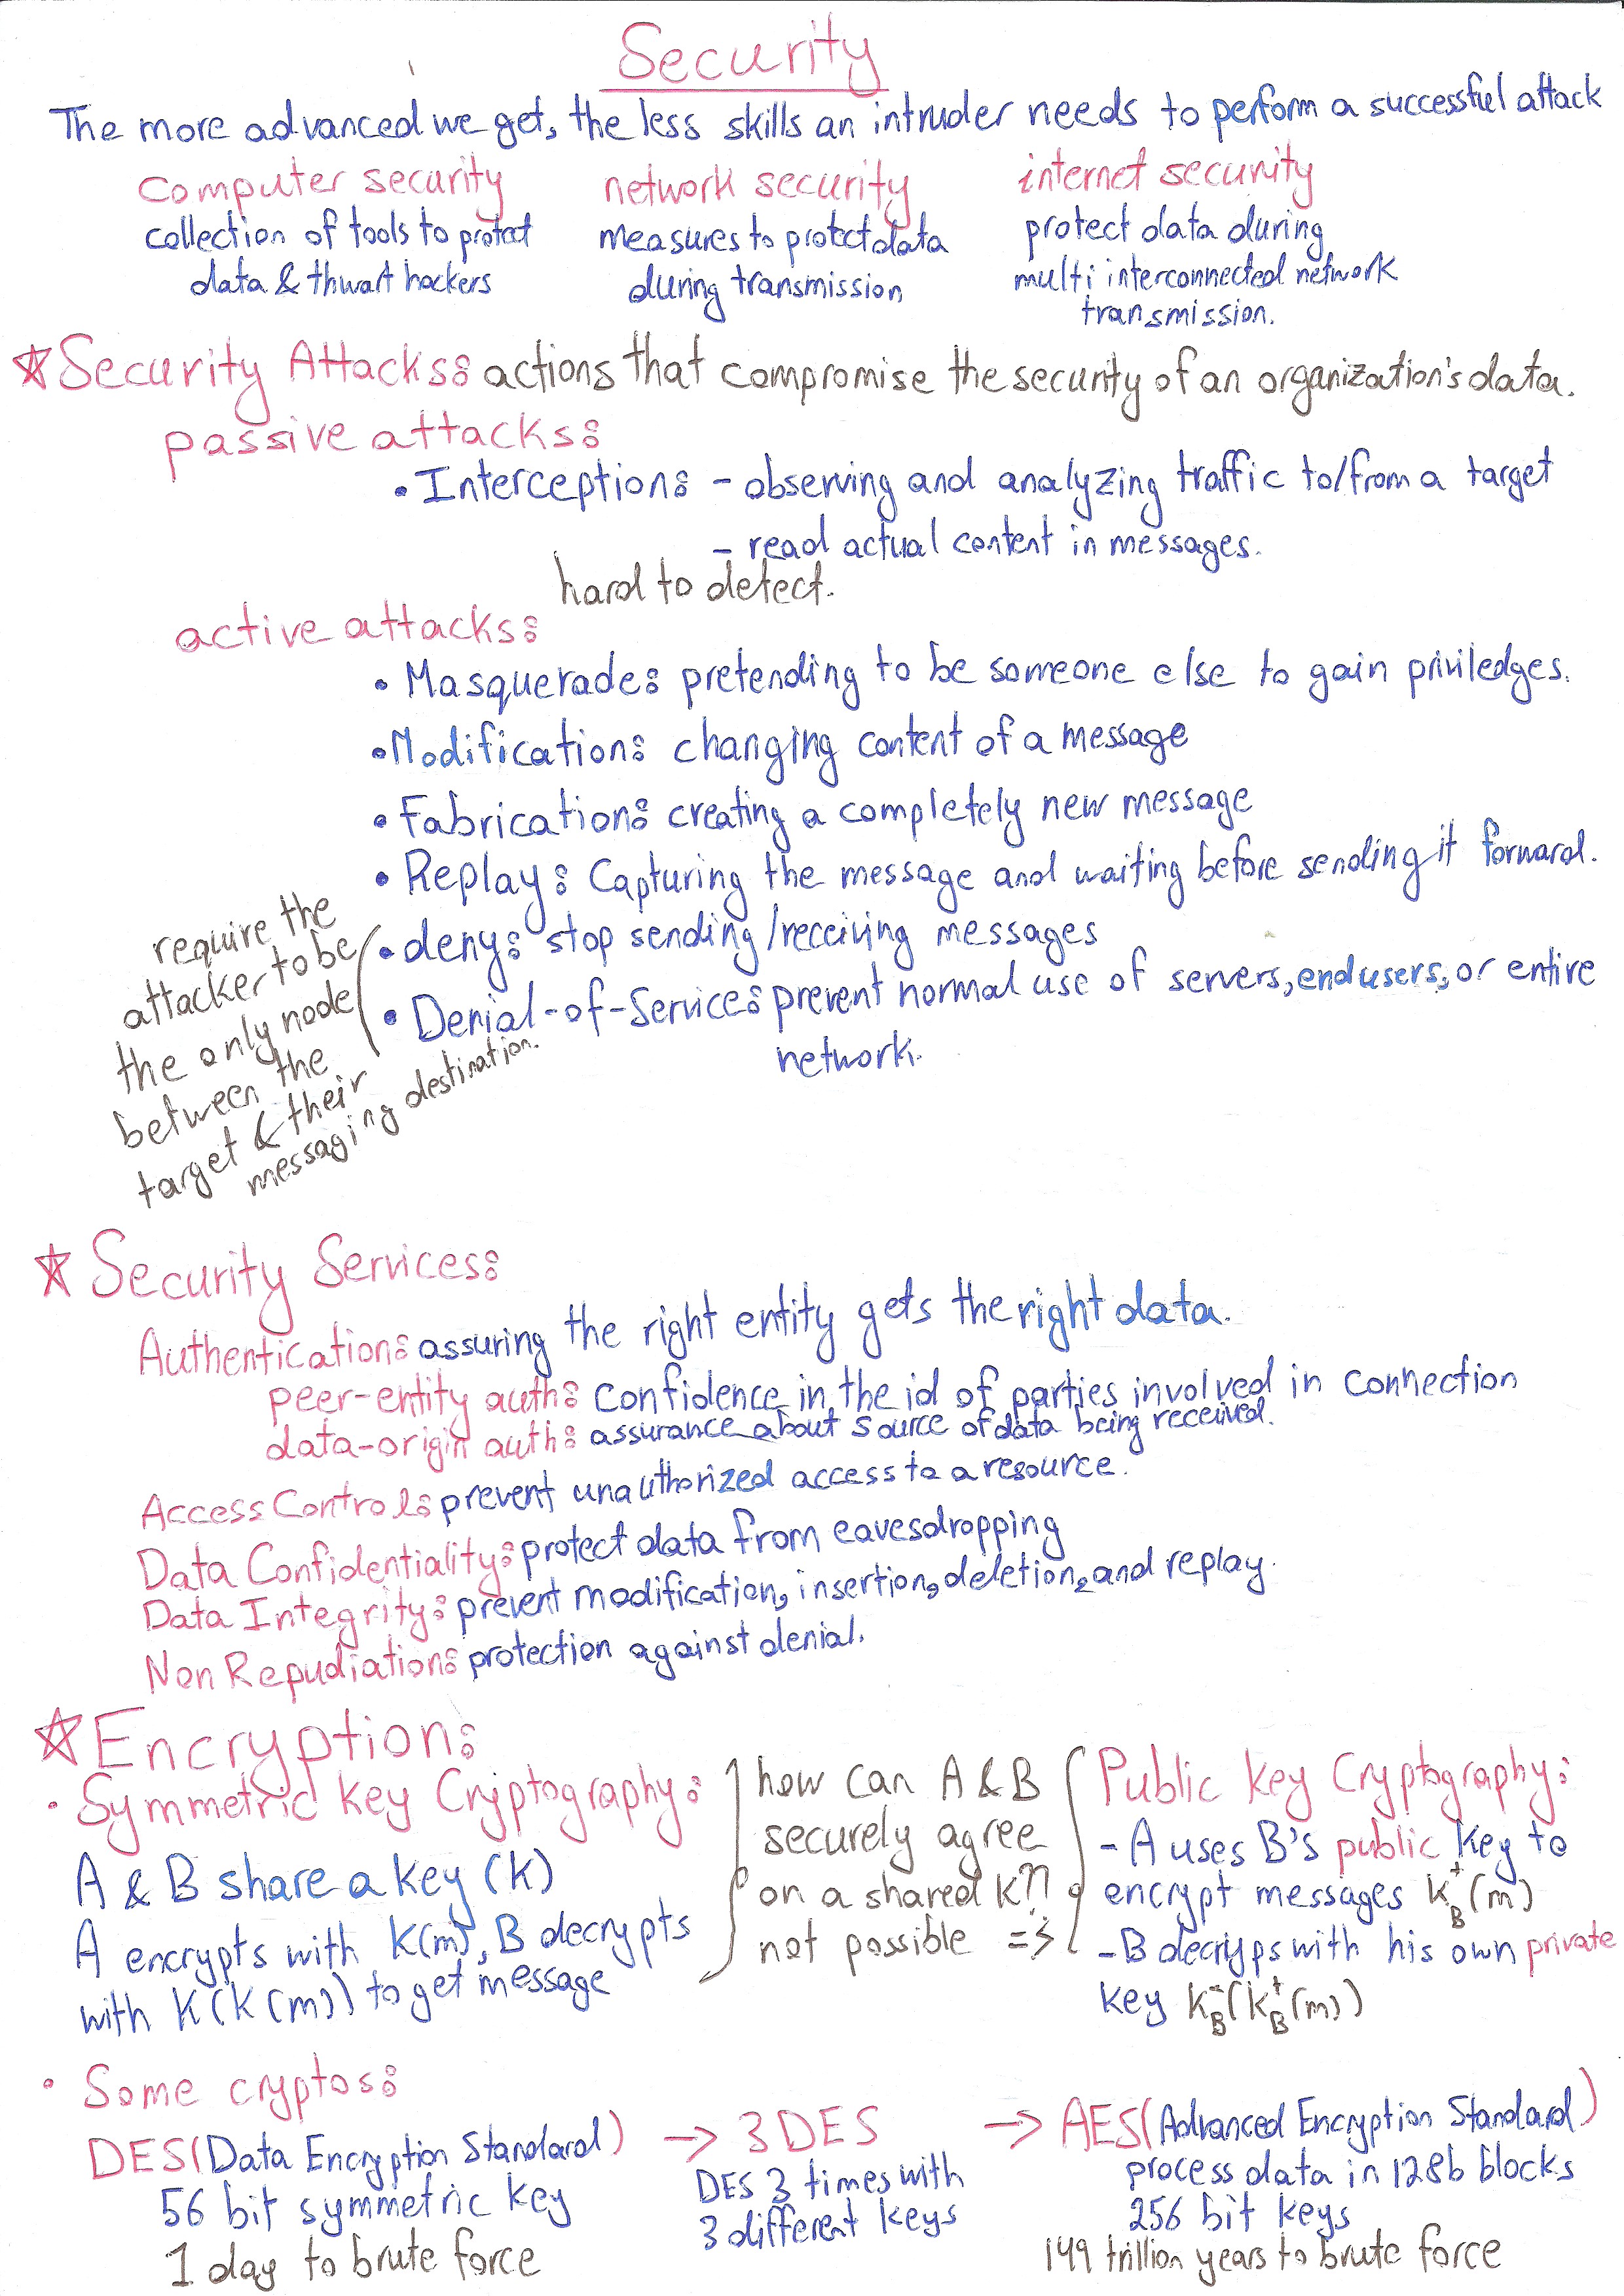 Security
The more advanced we get, the less skills an intruder needs to perform a successful attack
computer security
collection of tools to protect
data & thwart hackers
network security
measures to protect data
during transmission
internet security
protect data during
multi interconnected network
transmission.
☆ Security Attacks: actions that compromise the security of an organization's data.
passive attacks:
• Interception: - observing and analyzing traffic to/from a target
- read actual content in messages.
hard to detect.
active attacks:
• Masquerade: pretending to be someone else to gain priviledges.
• Modification: changing content of a message
• Fabrication: creating a completely new message
• Replay: Capturing the message and waiting before sending it forward.
• deny: stop sending/receiving messages
• Denial-of-Service: prevent normal use of servers, end users, or entire
network.
require the
attacker to be
the only node
between the
target & their
messaging destination.
☆ Security Services:
Authentication: assuring the right entity gets the right data.
peer-entity auth: confidence in the id of parties involved in connection
data-origin auth: assurance about source of data being received.
Access Control: prevent unauthorized access to a resource.
Data Confidentiality: protect data from eavesdropping
Data Integrity: prevent modification, insertion, deletion, and replay.
Non Repudiation: protection against denial.
☆ Encryption:
• Symmetric key Cryptography:
A & B share a key (k)
A encrypts with K(m), B decrypts
with K(K(m)) to get message
how can A & B
securely agree
on a shared K??
not possible =>
Public key Cryptography:
- A uses B's public key to
encrypt messages K⁺B(m)
- B decryps with his own private
key K⁻B(K⁺B(m))
• Some cryptos:
DES(Data Encryption Standard)
56 bit symmetric key
1 day to brute force
→ 3DES
DES 3 times with
3 different keys
→ AES(Advanced Encryption Standard)
process data in 128b blocks
256 bit keys
149 trillion years to brute force